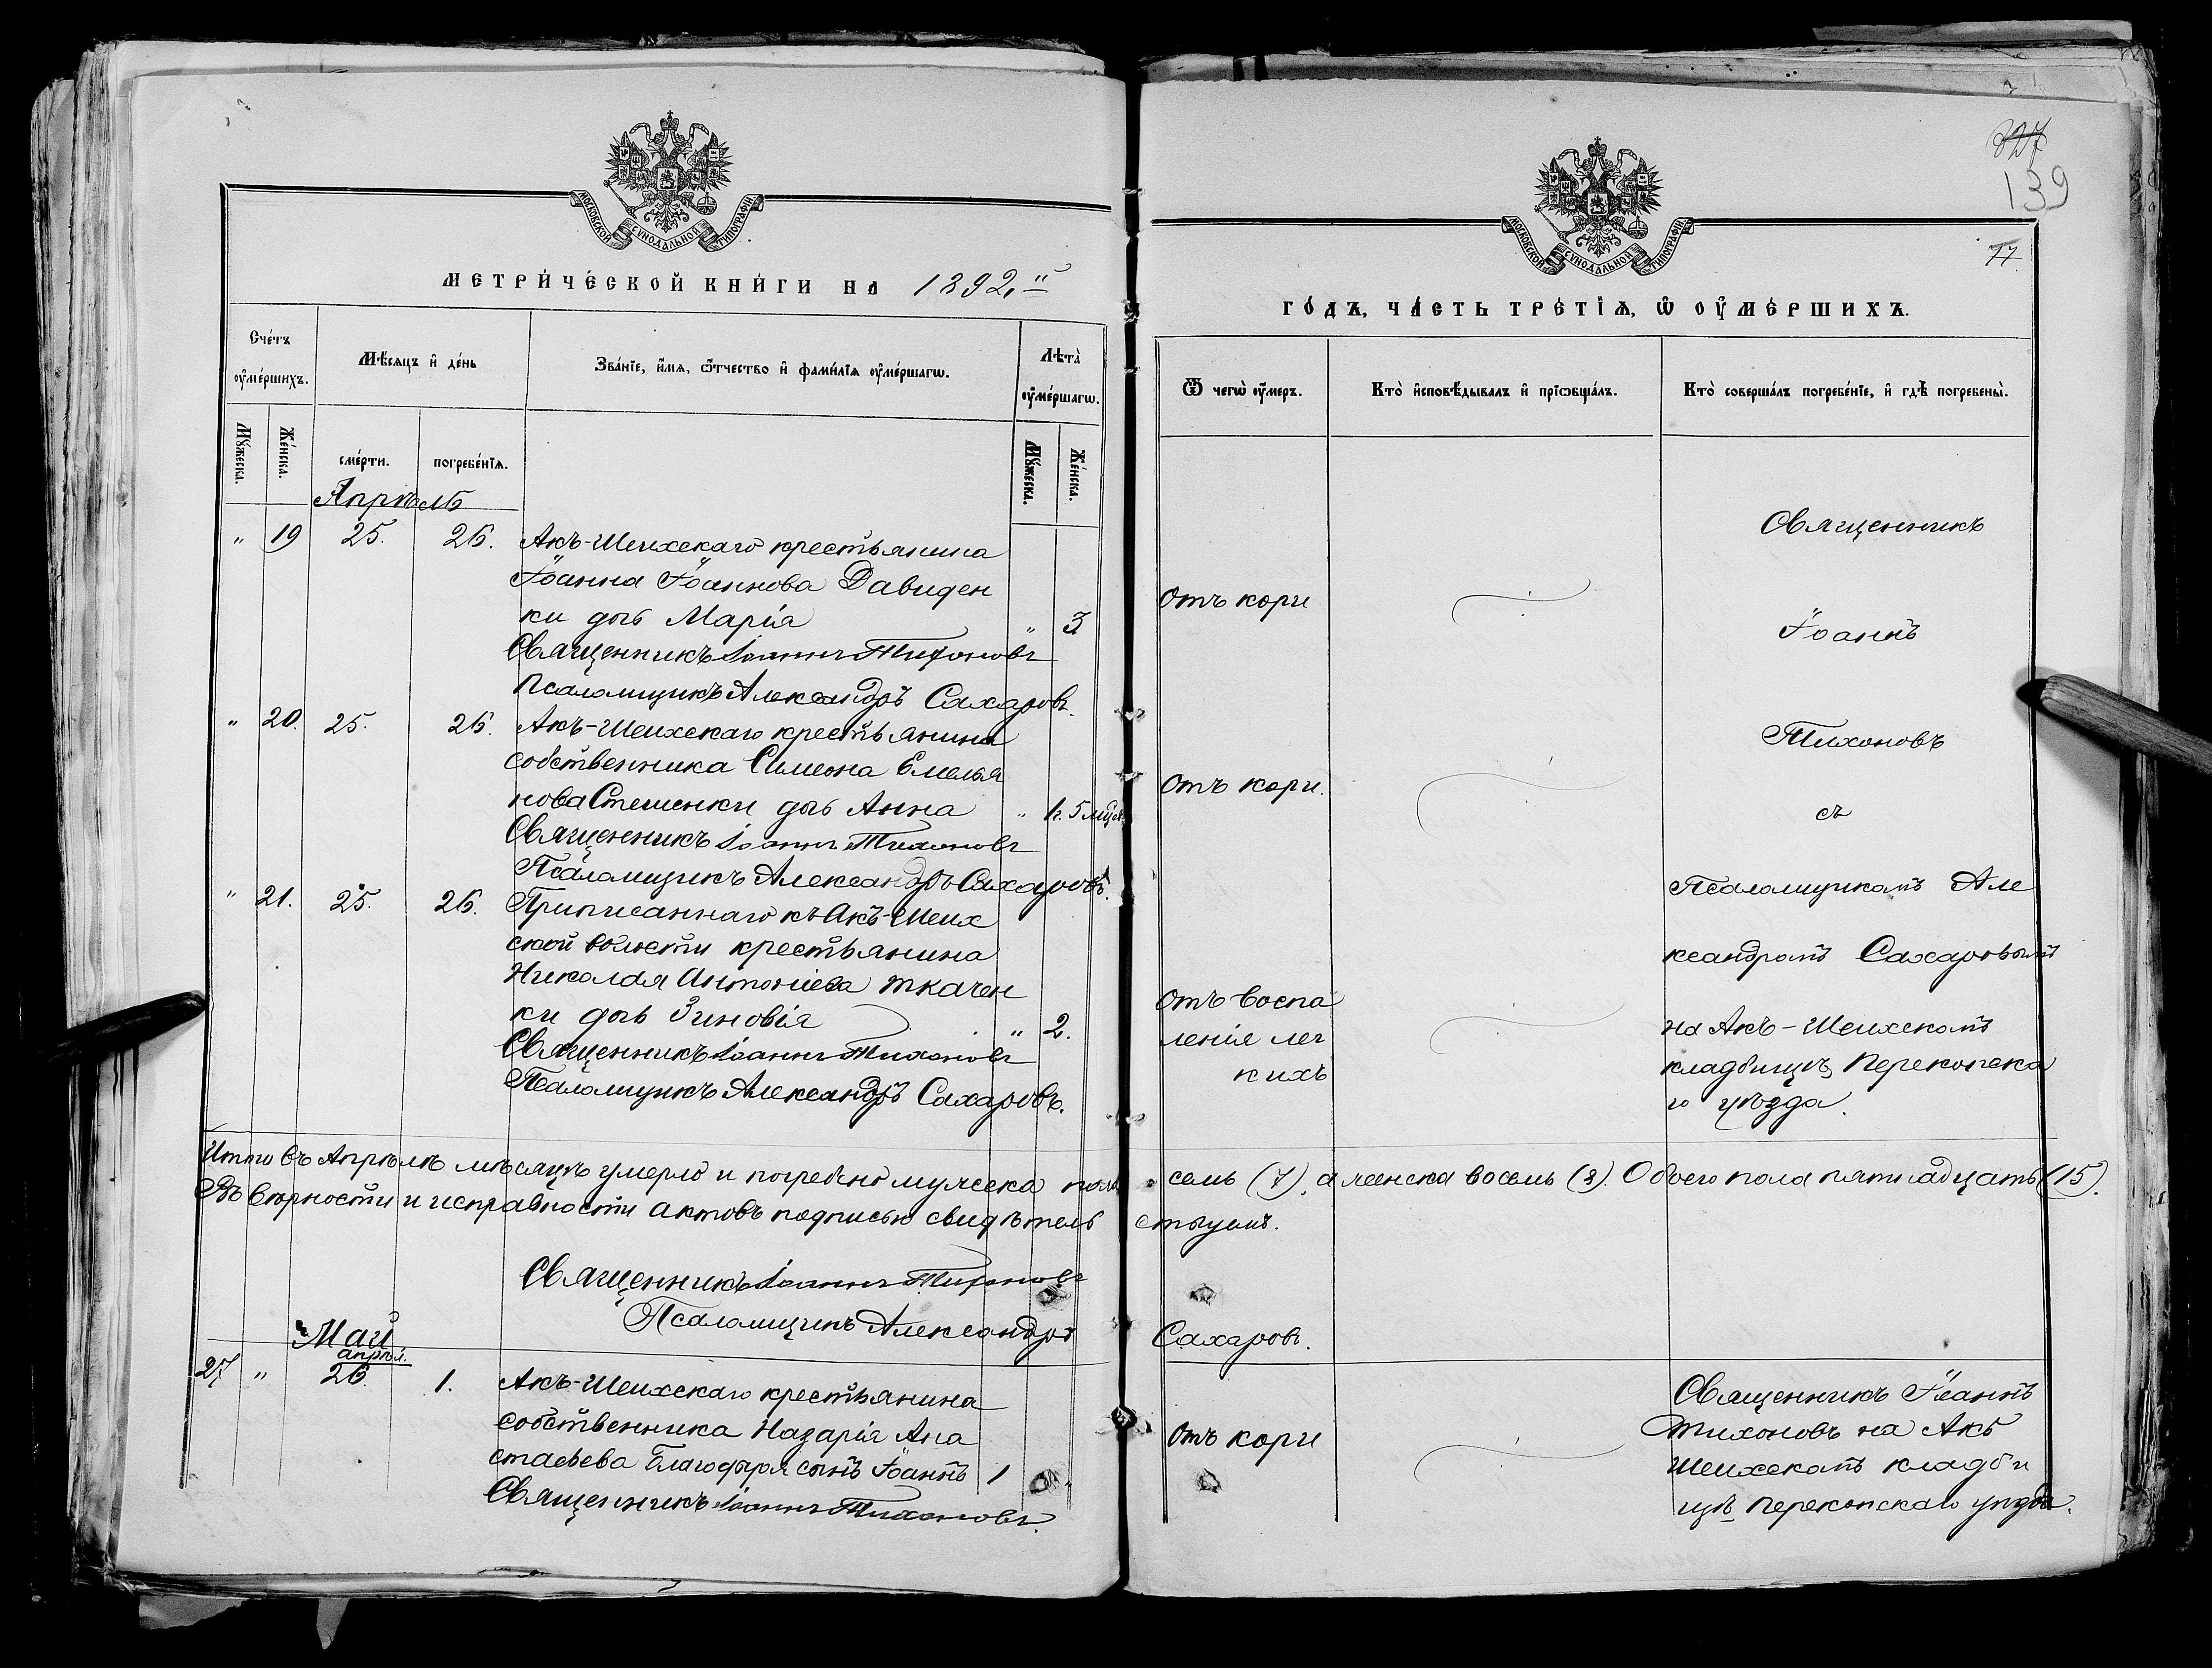 МОСКОВСКОЙ СѴНОДАЛЬНОЙ ТИПОГРАФІИ
МЕТРИ́ЧЕСКОЙ КНИ́ГИ НА 1892
Сче́тъ оу҆ме́ршихъ.
Мѣ́сяцъ и҆ де́нь
Зва́нїе, и҆́мя, ѿтчество и҆ фами́лїя оу҆ме́ршагѡ.
Лѣта̀ оу҆ме́ршагѡ.
Мꙋ́жеска.
Же́нска.
сме́рти.
погребе́нїя.
Мꙋ́жеска.
Же́нска.
Апрѣль
" 19 25. 26. Акъ-Шеихскаго крестьянина
Іоанна Іоаннова Давиден
ки дочь Марія " 3
Священникъ Іоаннъ Тихоновъ
Псаломщикъ Александръ Сахаровъ.
" 20. 25. 26. Акъ-Шеихскаго крестьянина
собственника Симеона Емелья
нова Стешенки дочь Анна " 1 г. 5 мѣс.
Священникъ Іоаннъ Тихоновъ
Псаломщикъ Александръ Сахаровъ.
" 21. 25. 26. Приписаннаго къ Акъ-Шеих
ской волости крестьянина
Николая Антоніева Ткачен
ки дочь Зиновія " 2.
Священникъ Іоаннъ Тихоновъ
Псаломщикъ Александръ Сахаровъ.
Итого въ Апрѣлѣ мѣсяцѣ умерло и погребено мужеска пола
Въ вѣрности и исправности актовъ подписью свидѣтель
Священникъ Іоаннъ Тихоновъ
Псаломщикъ Александръ
Май
апрѣл.
27 " 26 1. Акъ-Шеихскаго крестьянина
собственника Назарія Ана
стасьева Благодыря сынъ Іоаннъ 1 "
Священникъ Іоаннъ Тихоновъ.
327
139
77
МОСКОВСКОЙ СѴНОДАЛЬНОЙ ТИПОГРАФІИ
ГО́ДЪ, ЧА́СТЬ ТРЕ́ТІѦ, Ѡ҆ ОУ҆МЕ́РШИХЪ.
Ѿ чегѡ̀ оу҆́меръ.
Кто̀ и҆сповѣ́дывалъ и҆ прїѡбща́лъ.
Кто̀ соверша́лъ погребе́нїе, и҆ гдѣ̀ погребены̀.
Священникъ
Отъ кори
Іоаннъ
Тихоновъ
Отъ кори.
съ
Псаломщикомъ Але
ксандромъ Сахаровымъ
Отъ воспа
ленія лег
кихъ
на Акъ-Шеихскомъ
кладбищѣ Перекопска
го уѣзда.
семь (7), а женска восемь (8). Обоего пола пятнадцать (15).
ствуемъ.
Сахаровъ.
Отъ кори
Священникъ Іоаннъ
Тихоновъ на Акъ
Шеихскомъ кладби
щѣ Перекопскаго уѣзда.